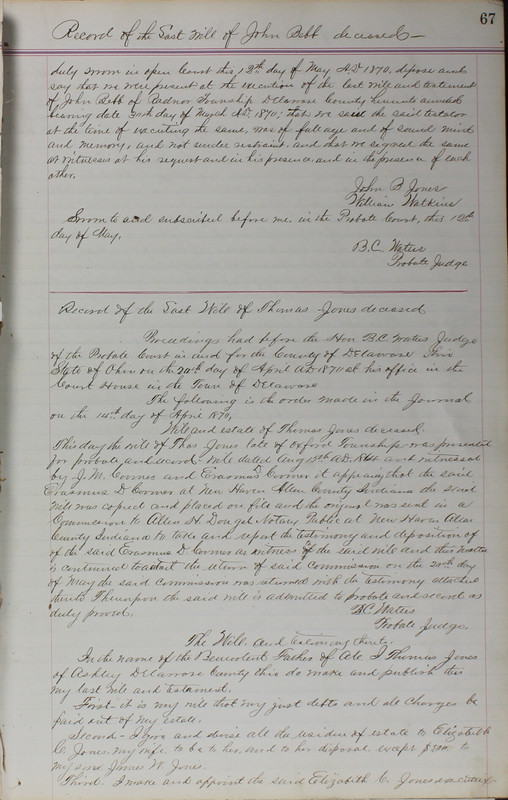 67
Record of the Last Will of John Bebb deceased —
duly sworn in open Court this 12th day of May A.D. 1870, depose and
say that we were present at the execution of the last will and testament
of John Bebb of Radnor Township Delaware County hereunto annexed
bearing date 30th day of March A.D. 1870; that we saw the said testator
at the time of executing the same, was of full age and of sound mind
and memory, and not under restraint and that we signed the same
as witnesses at his request and in his presence and in the presence of each
other.
John B Jones
William Watkins
Sworn to and subscribed before me in the Probate Court, this 12th
day of May.
B.C. Waters
Probate Judge
Record of the Last Will of Thomas Jones deceased
Proceedings had before the Hon B.C. Waters Judge
of the Probate Court in and for the County of Delaware
State of Ohio on the 20th day of April A.D 1870 at his office in the
Court House in the Town of Delaware
The following is the order made in the Journal
on the 14th day of April 1870,
Will and Estate of Thomas Jones deceased.
This day the will of Thos Jones late of Oxford Township was presented
for probate and record. Will dated Aug 15th A.D. 1864 and witnessed
by J. M. Conner and Erasmus D Conner it appearing that the said
Erasmus D Conner at New Haven Allen County Indiana the said
will was copied and placed on file and the original was sent in a
Commission to Allen H Dougal Notary Public at New Haven Allen
County Indiana to take and report the testimony and deposition of
of the said Erasmus D. Conner as witness of the said will and this matter
is continued to await the return of said Commission on the 20th day
of May the said Commission was returned with the testimony attached
thereto Thereupon the said will is admitted to probate and record as
duly proved.
B.C. Waters
Probate Judge.
The Will. and
In the name of the Benevolent Father of All I Thomas Jones
of Ashley Delaware County Ohio do make and publish this
my last will and testament.
First - it is my will that my just debts and all charges be
paid out of my estate.
Second - I give and devise all the residue of estate to Elizabeth
C. Jones, my wife to be to her, and to her disposal except $300 to
my son James W. Jones.
Third. I make and appoint the said Elizabeth C. Jones executrix